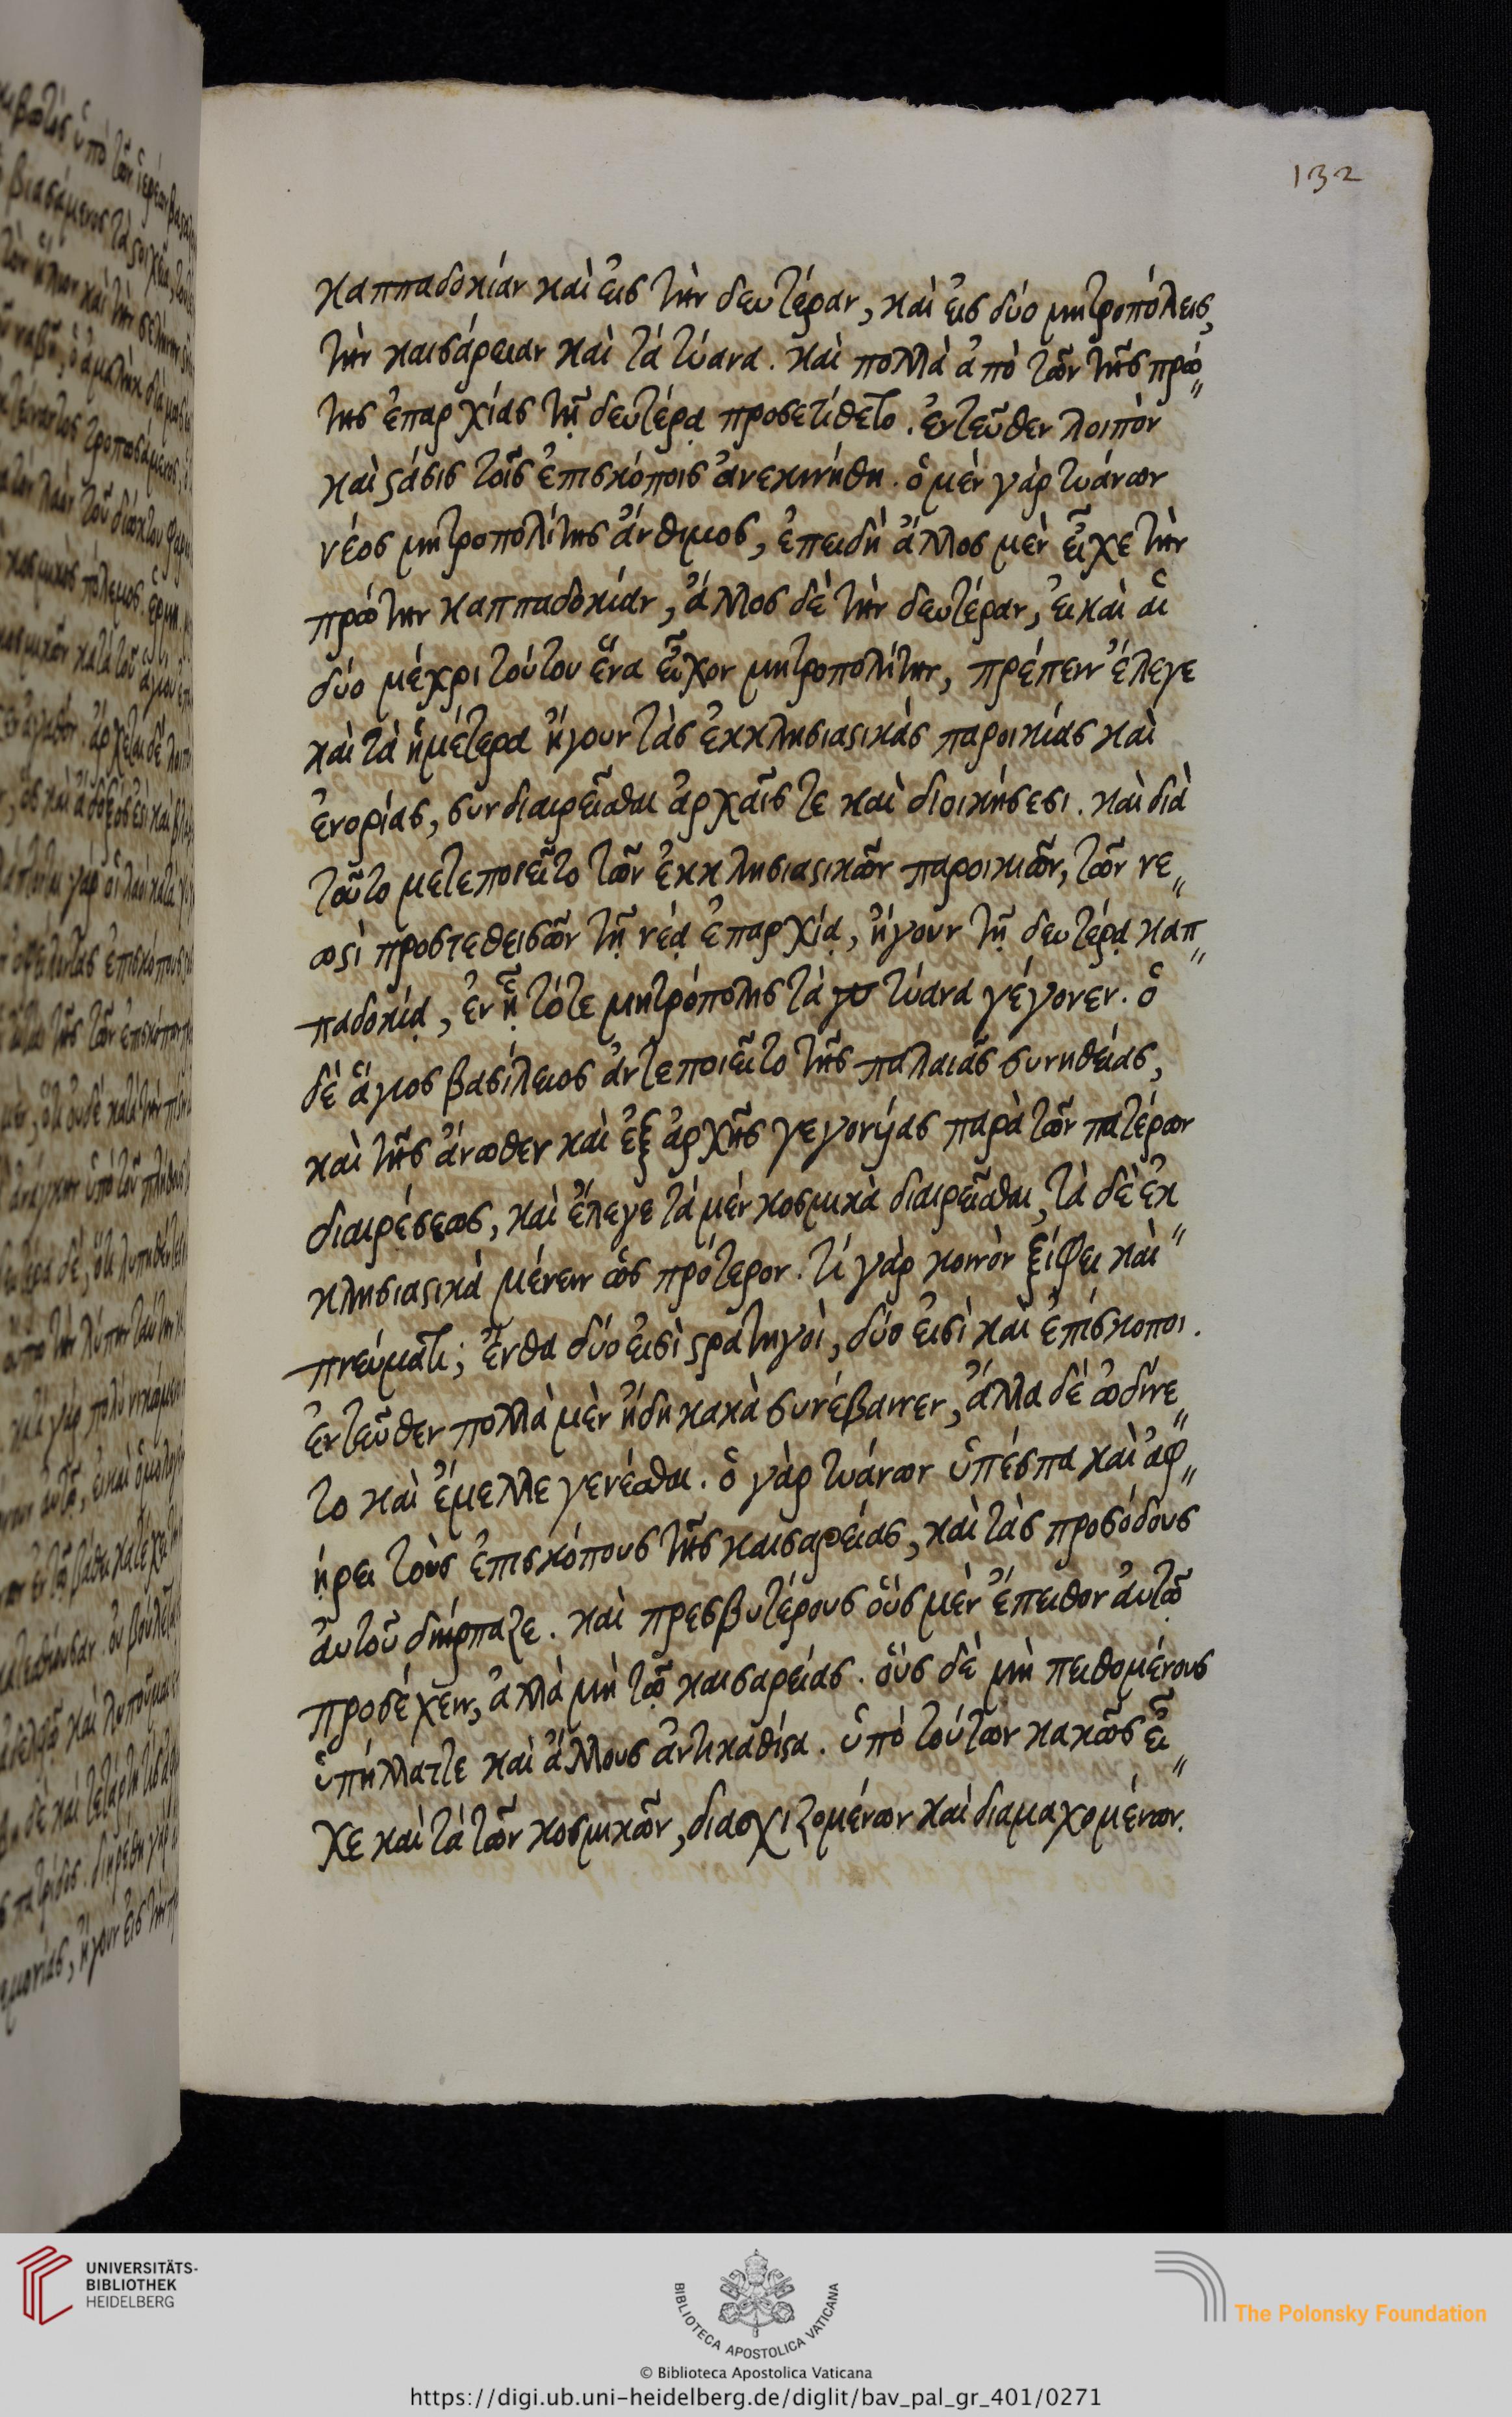 132
καππαδοκίαν καὶ εἰς τὴν δευτέραν, καὶ εἰς δύο μητροπόλεις,
τὴν καισάρειαν καὶ τὰ τύανα. καὶ πολλὰ ἀπὸ τῶν τῆς πρώ
της ἐπαρχίας τῇ δευτέρᾳ προσετίθετο. ἐντεῦθεν λοιπὸν
καὶ ϛάσις τοῖς ἐπισκόποις ἀνεκινήθη. ὁ μὲν γὰρ τυάνων
νέος μητροπολίτης ἄνθιμος, ἐπειδὴ ἄλλος μὲν εἶχε τὴν
πρώτην καππαδοκίαν, ἄλλος δὲ τὴν δευτέραν, εἰ καὶ αἱ
δύο μέχρι τούτου ἕνα εἶχον μητροπολίτην, πρέπειν ἔλεγε
καὶ τὰ ἡμέτερα ἤγουν τὰς ἐκκλησιαϛικὰς παροικίας καὶ
ἐνορίας, συνδιαιρεῖσθαι ἀρχαῖς τε καὶ διοικήσεσι. καὶ διὰ
τοῦτο μετεποιεῖτο τῶν ἐκκλησιαϛικῶν παροικιῶν, τῶν νε
ωϛὶ προστεθεισῶν τῇ νέᾳ ἐπαρχίᾳ, ἤγουν τῇ δευτέρᾳ καπ
παδοκίᾳ, ἐν ᾗ τότε μητρόπολις τὰ τύανα γέγονεν. ὁ
δὲ ἅγιος βασίλειος ἀντεποιεῖτο τῆς παλαιᾶς συνηθείας,
καὶ τῆς ἄνωθεν καὶ ἐξ ἀρχῆς γεγονυίας παρὰ τῶν πατέρων
διαιρέσεως, καὶ ἔλεγε τὰ μὲν κοσμικὰ διαιρεῖσθαι, τὰ δὲ ἐκ
κλησιαϛικὰ μένειν ὡς πρότερον. τί γὰρ κοινὸν ξίφει καὶ
πνεύματι; ἔνθα δύο εἰσὶ ϛρατηγοὶ, δύο εἰσὶ καὶ ἐπίσκοποι.
ἐντεῦθεν πολλὰ μὲν ἤδη κακὰ συνέβαινεν, ἄλλα δὲ ὠδίνε
το καὶ ἔμελλε γενέσθαι. ὁ γὰρ τυάνων ὑπέσπα καὶ ἀφ
ήρει τοὺς ἐπισκόπους τῆς καισαρείας, καὶ τὰς προσόδους
αὐτοῦ διήρπαζε. καὶ πρεσβυτέρους οὓς μὲν ἔπειθον αὐτῷ
προσέχειν, ἀλλὰ μὴ τῷ καισαρείας. οὓς δὲ μὴ πειθομένους
ὑπήλλαττε καὶ ἄλλους ἀντικαθίϛα. ὑπὸ τούτων κακῶς εἶ
χε καὶ τὰ τῶν κοσμικῶν, διασχιζομένων καὶ διαμαχομένων.
UNIVERSITÄTS-
BIBLIOTHEK
HEIDELBERG
BIBLIOTECA APOSTOLICA VATICANA
The Polonsky Foundation
© Biblioteca Apostolica Vaticana
https://digi.ub.uni-heidelberg.de/diglit/bav_pal_gr_401/0271